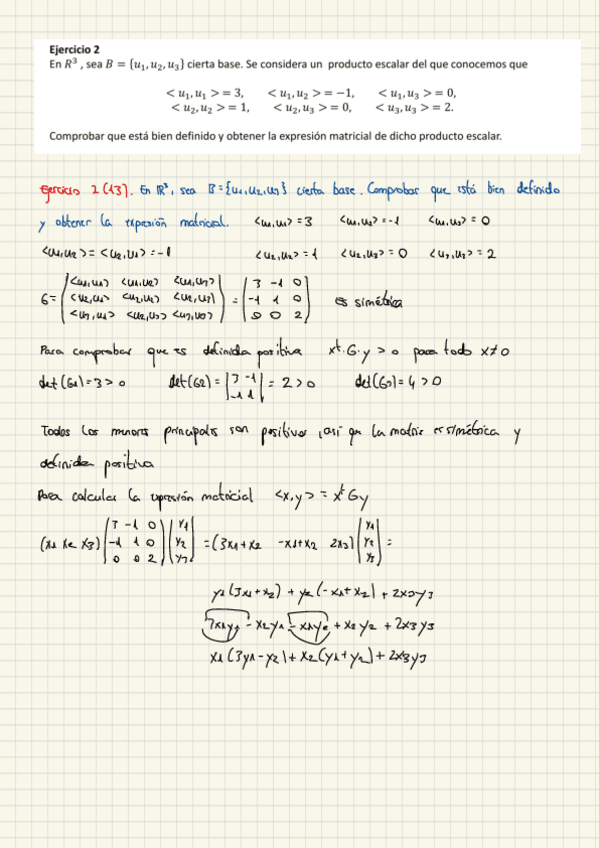 Ejercicio 2
En R³ , sea B = {u₁, u₂, u₃} cierta base. Se considera un producto escalar del que conocemos que
< u₁, u₁ > = 3, < u₁, u₂ > = −1, < u₁, u₃ > = 0,
< u₂, u₂ > = 1, < u₂, u₃ > = 0, < u₃, u₃ > = 2.
Comprobar que está bien definido y obtener la expresión matricial de dicho producto escalar.
Ejercicio 2 (13). En ℝ³, sea B={u₁,u₂,u₃} cierta base. Comprobar que está bien definido
y obtener la expresión matricial. <u₁,u₁> = 3 <u₁,u₂> = -1 <u₁,u₃> = 0
<u₁,u₂> = <u₂,u₁> = -1 <u₂,u₂> = 1 <u₂,u₃> = 0 <u₃,u₃> = 2
<u₁,u₁> <u₁,u₂> <u₁,u₃> 3 -1 0
G = <u₂,u₁> <u₂,u₂> <u₂,u₃> = -1 1 0 es simétrica
<u₃,u₁> <u₂,u₃> <u₃,u₃> 0 0 2
Para comprobar que es definida positiva xᵗ·G·y > 0 para todo x≠0
det(G₁) = 3 > 0 det(G₂) = |3 -1| = 2 > 0 det(G₃) = 4 > 0
|-1 1|
Todos los menores principales son positivos, así que la matriz es simétrica y
definida positiva
Para calcular la expresión matricial <x,y> = xᵗGy
3 -1 0 y₁ y₁
(x₁ x₂ x₃) -1 1 0 y₂ = (3x₁+x₂ -x₁+x₂ 2x₃) y₂ =
0 0 2 y₃ y₃
y₂(3x₁+x₂) + y₂(-x₁+x₂) + 2x₃y₃
3x₁y₁ - x₂y₁ - x₁y₂ + x₂y₂ + 2x₃y₃
x₁(3y₁-y₂) + x₂(y₁+y₂) + 2x₃y₃